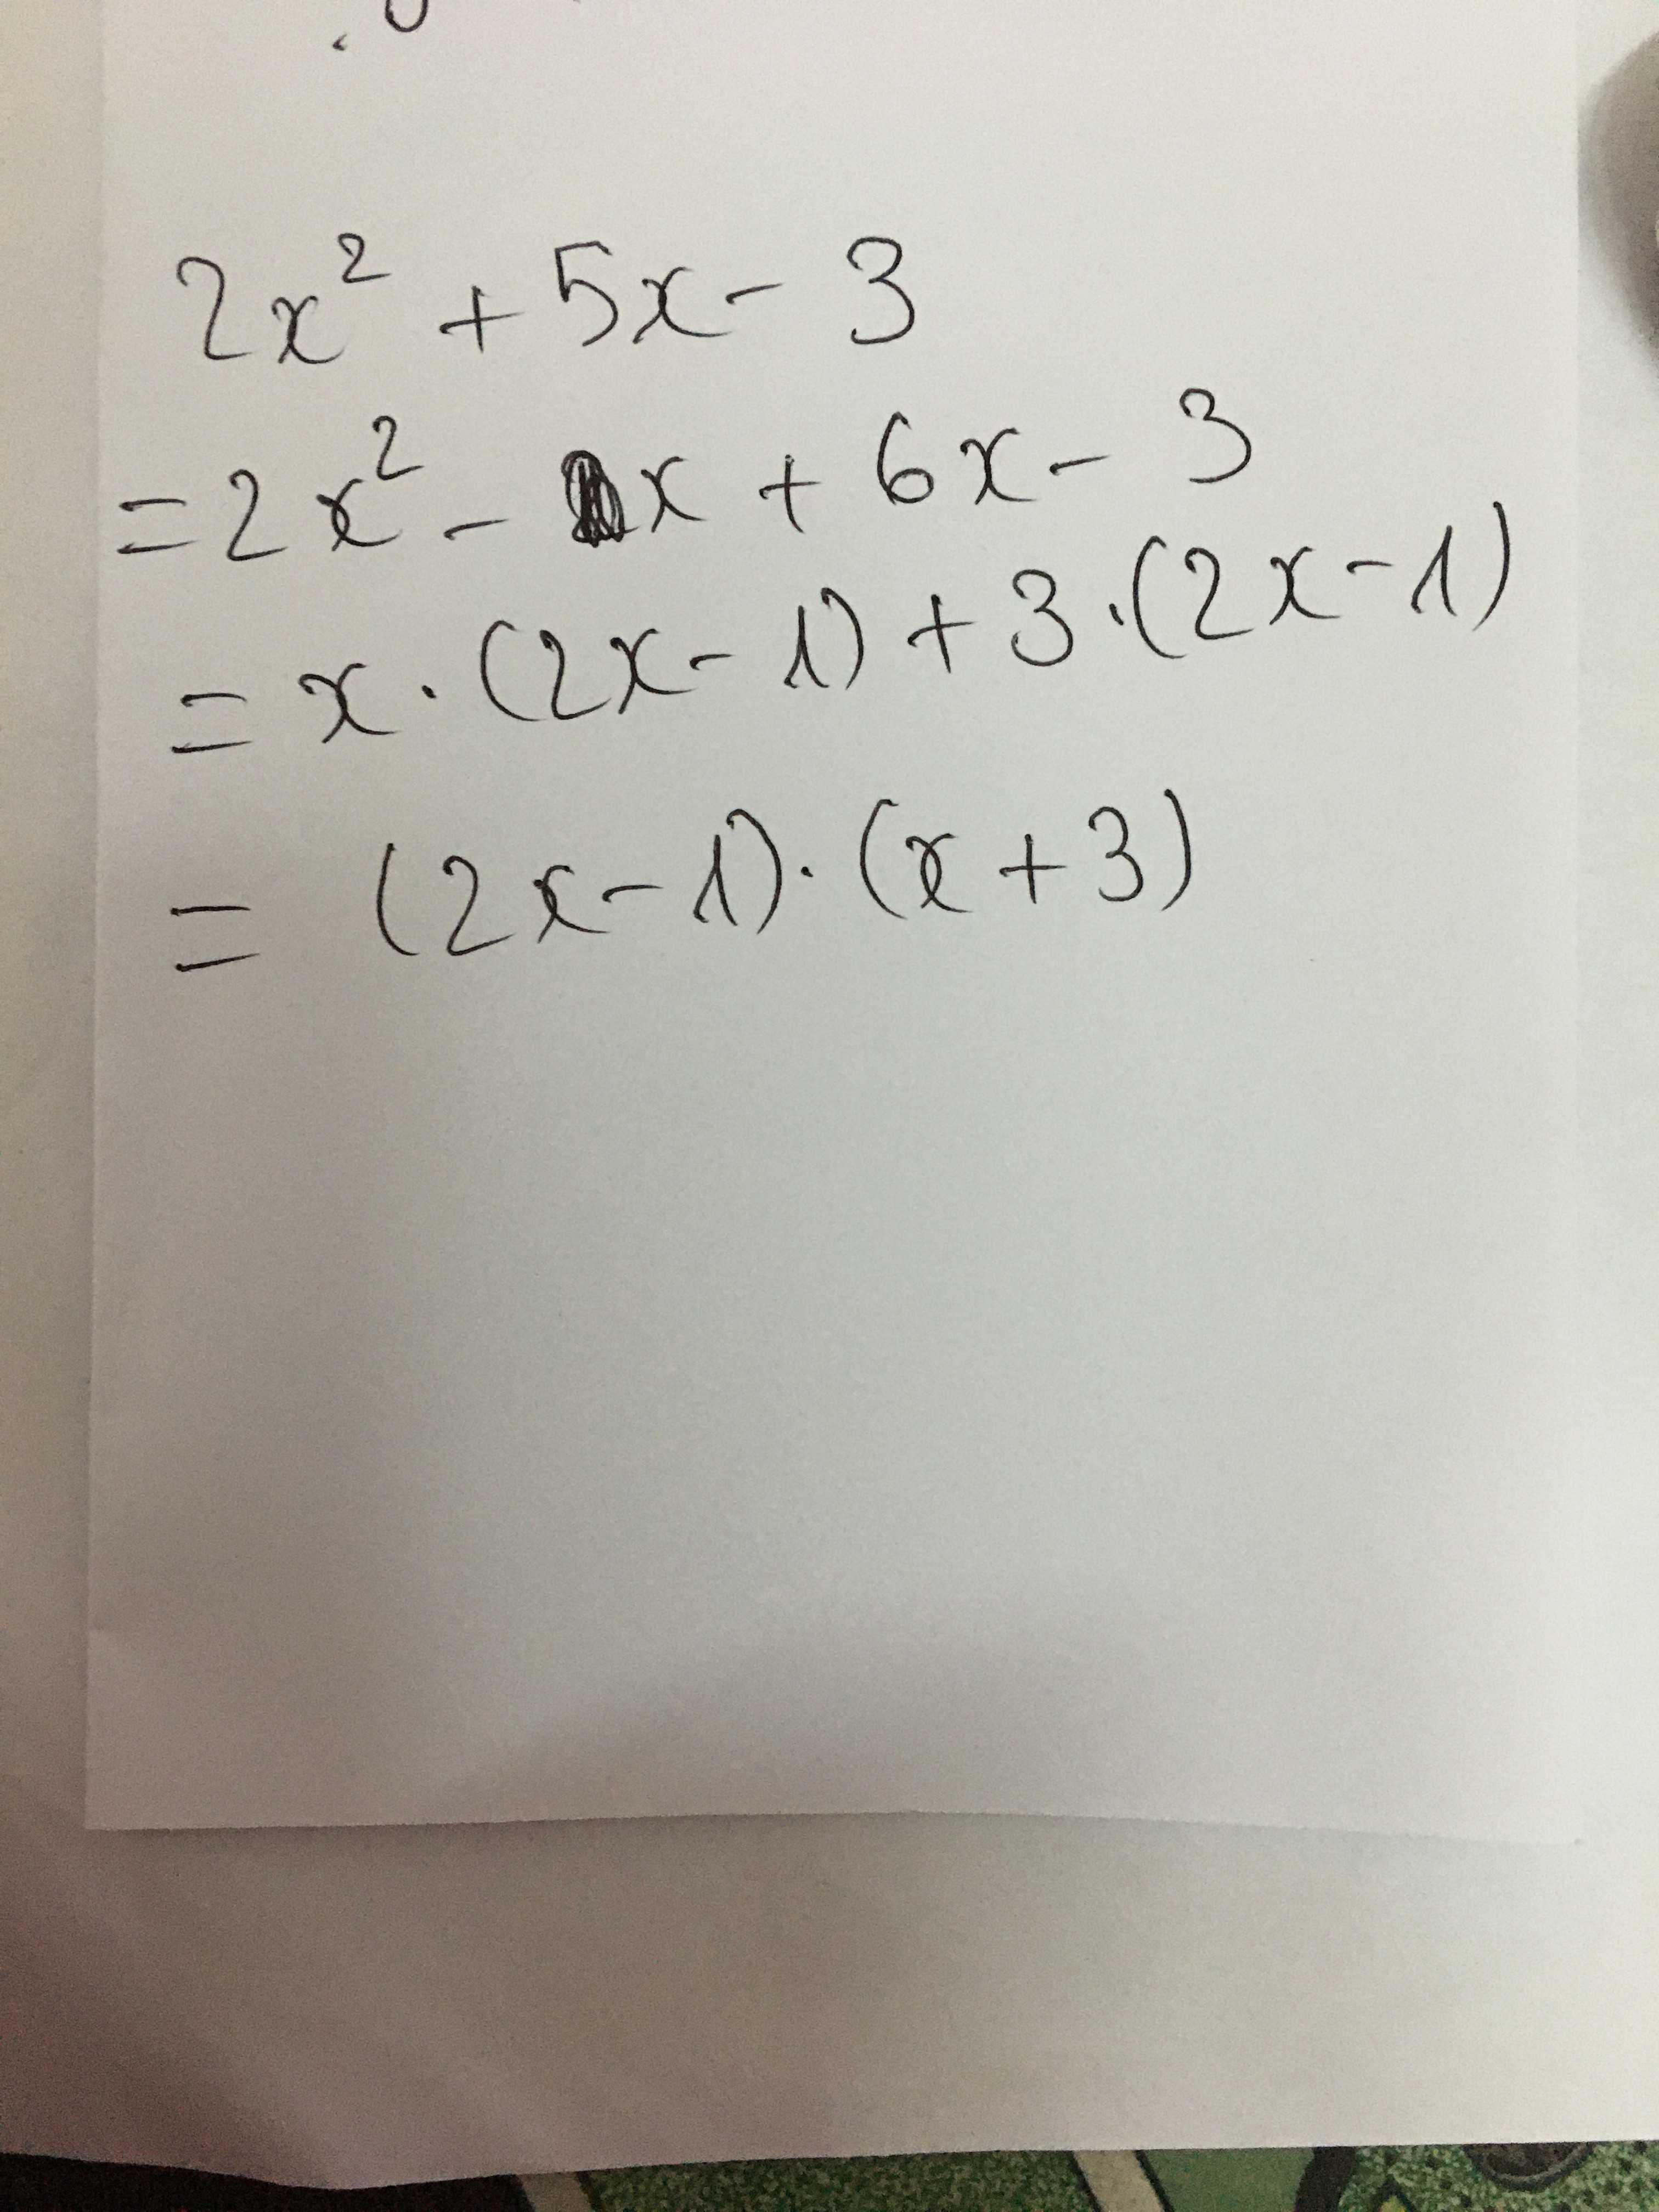 2x² + 5x - 3
= 2x² - x + 6x - 3
= x · (2x - 1) + 3 · (2x - 1)
= (2x - 1) · (x + 3)